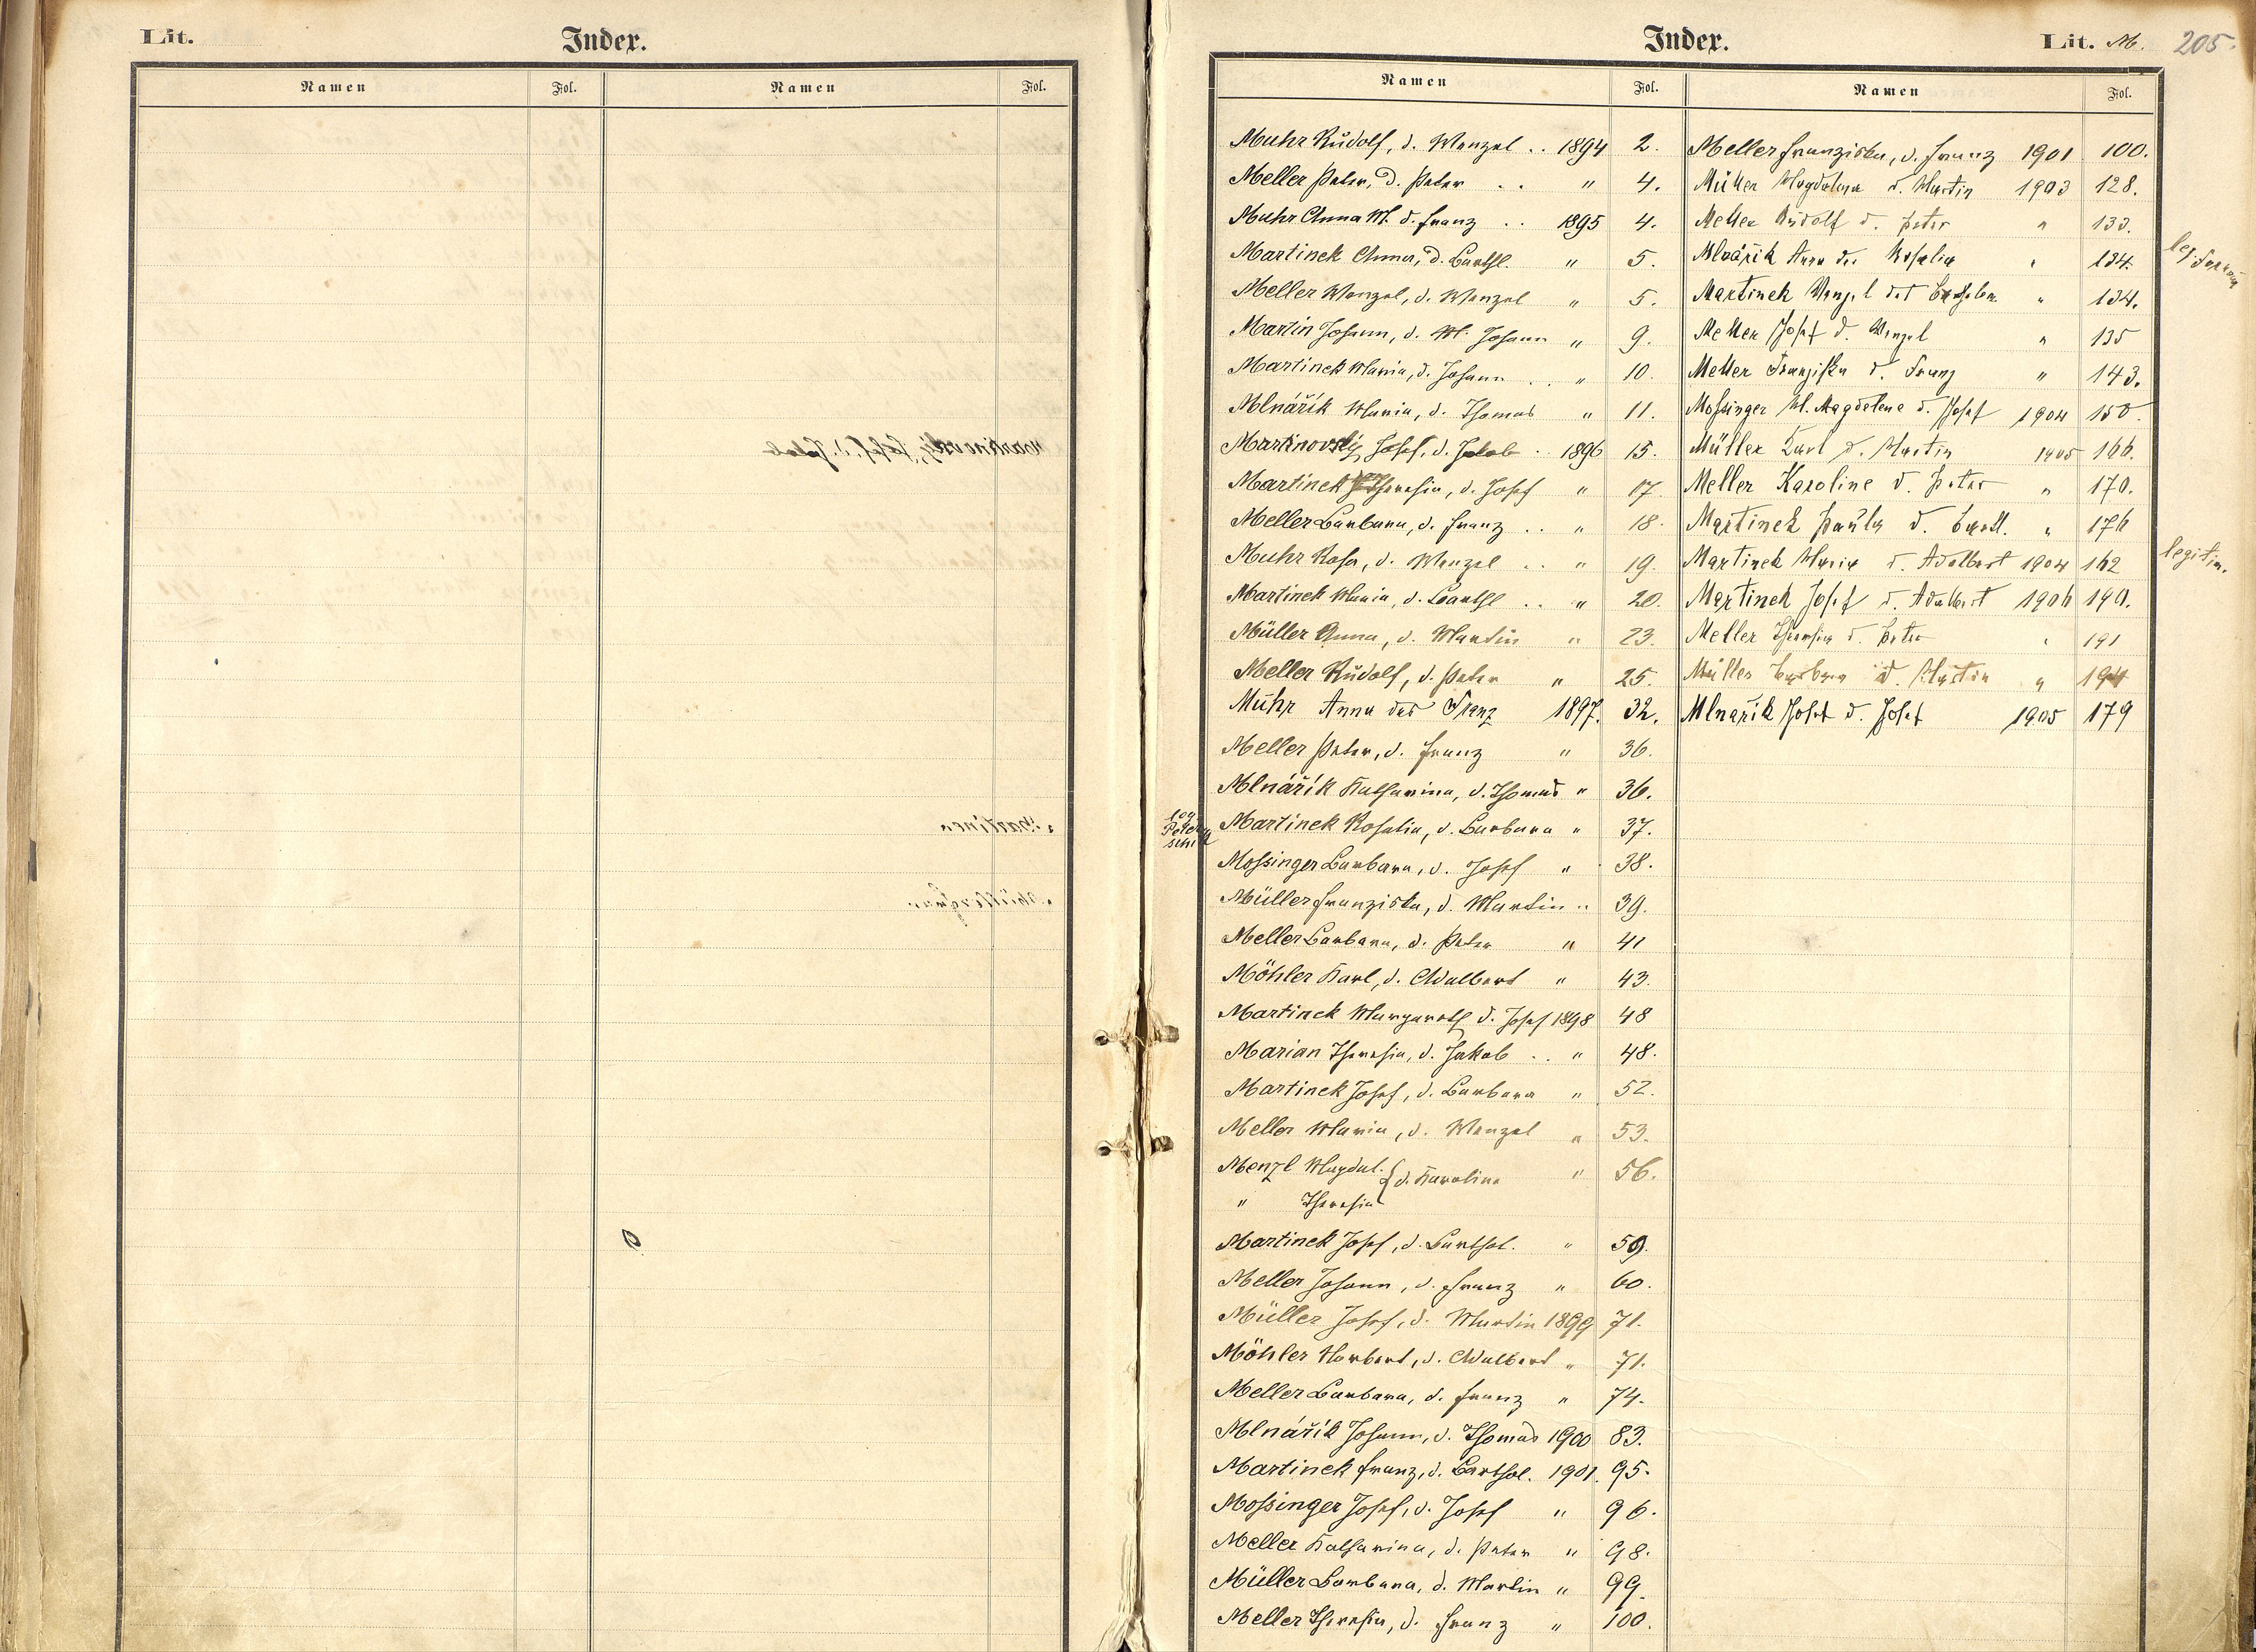 Lit.
Index.
Namen Fol. Namen Fol.
Index.
Lit. M. 205.
Namen Fol.
Muhr Rudolf, d. Wenzel .. 1894 2.
Meller Peter, d. Peter .. " 4.
Muhr Anna M. d. Franz .. 1895 4.
Martinek Anna, d. Barthl. " 5.
Meller Wenzel, d. Wenzel " 5.
Martin Johann, d. M. Johann " 9.
Martinek Maria, d. Johann .. " 10.
Mlnářík Maria, d. Thomas " 11.
Martinovsky Josef, d. Jakob . 1896 15.
Martinek Theresia, d. Josef " 17.
Meller Barbara, d. Franz .. " 18.
Muhr Rosa, d. Wenzel .. " 19.
Martinek Maria, d. Barthl .. " 20.
Müller Anna, d. Martin " 23.
Meller Rudolf, d. Peter " 25.
Muhr Anna des Franz 1897. 32.
Meller Peter, d. Franz " 36.
Mlnářík Katharina, d. Thomas " 36.
Martinek Rosalia, d. Barbara " 37.
Mossinger Barbara, d. Josef " 38.
Müller Franziska, d. Martin " 39.
Meller Barbara, d. Peter " 41
Möhler Karl, d. Adalbert " 43.
Martinek Margareth d. Josef 1898 48
Marian Theresia, d. Jakob .. " 48.
Martinek Josef, d. Barbara " 52.
Meller Maria, d. Wenzel " 53.
Menzl Magdal. { d. Karolina " 56.
" Theresia
Martinek Josef, d. Barthol. " 59.
Meller Johann, d. Franz " 60.
Müller Josef, d. Martin 1899 71.
Möhler Norbert, d. Adalbert " 71.
Meller Barbara, d. Franz " 74.
Mlnářík Johann, d. Thomas 1900 83.
Martinek Franz, d. Barthol. 1901. 95.
Mossinger Josef, d. Josef " 96.
Meller Katharina, d. Peter " 98.
Müller Barbara, d. Martin " 99.
Meller Theresia, d. Franz " 100.
Namen Fol.
Meller Franziska, d. Franz 1901 100.
Müller Magdalena d. Martin 1903 128.
Meller Rudolf d. Peter " 133.
Mlnářik Anna der Rosalia " 134.
leg.
Martinek Wenzel des " 134.
Meller Josef d. Wenzel " 135
Meller Franziska d. Franz " 143.
Mossinger M. Magdalena d. Josef 1904 150.
Müller Karl d. Martin 1905 166.
Meller Karoline d. Peter " 170.
Martinek Paula d. Barthl. " 176
Martinek Maria d. Adalbert 1904 162
legitim.
Martinek Josef d. Adalbert 1906 190.
Meller Theresia d. Peter " 191
Müller Barbara d. Martin " 194
Mlnařik Josef d. Josef 1905 179